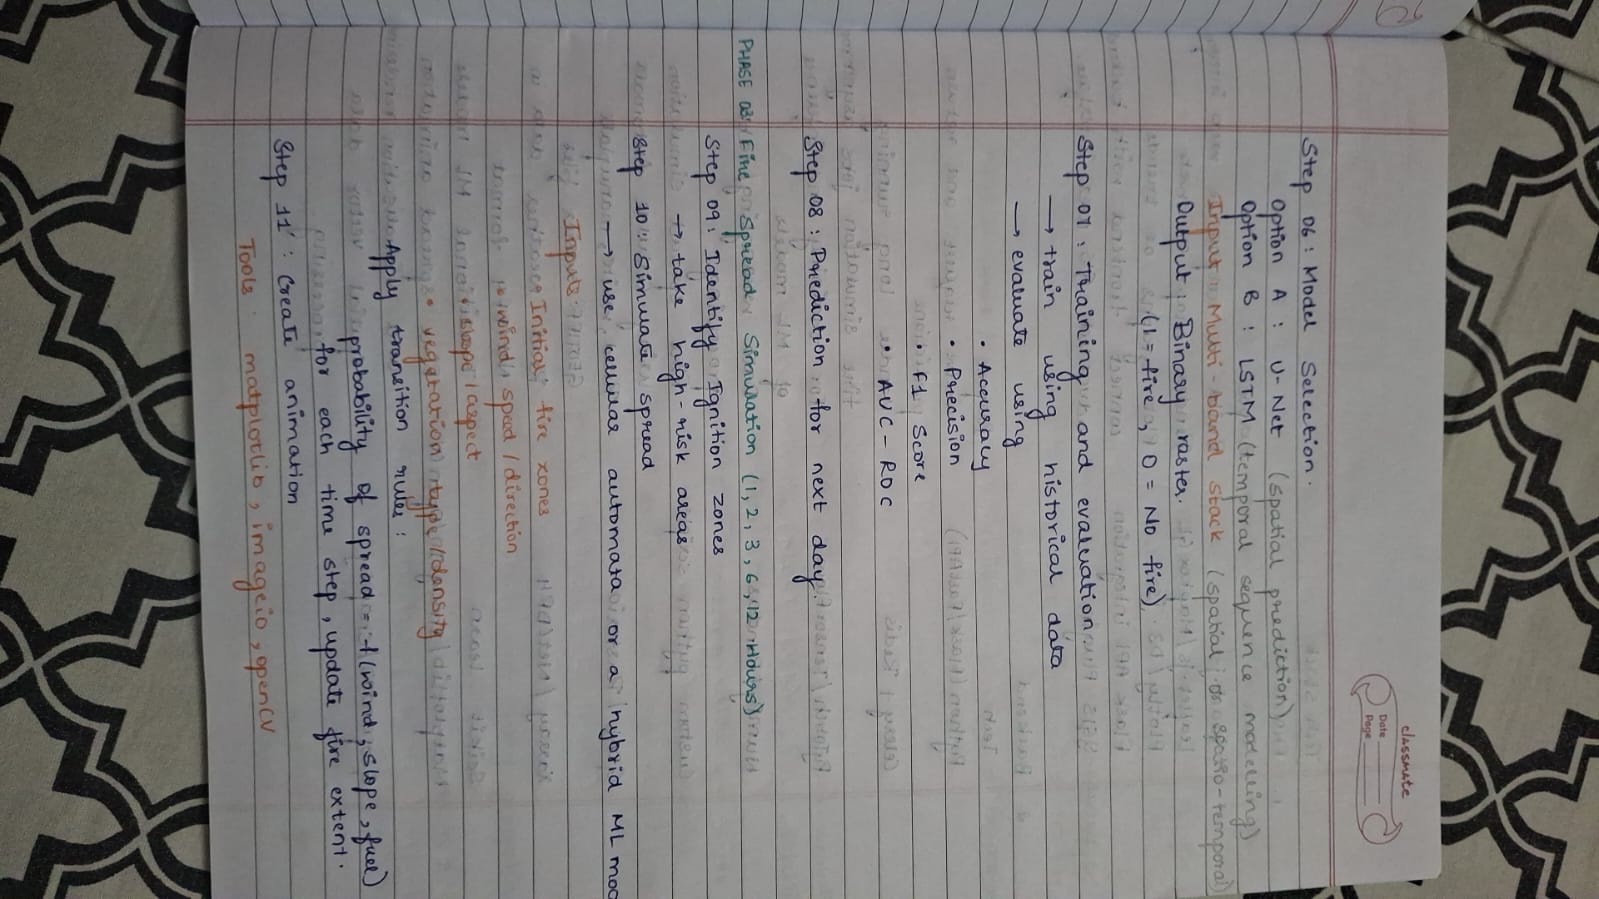 classmate
Date
Page
Step 06 : Model Selection.
Option A : U-Net (spatial prediction)
Option B : LSTM (temporal sequence modelling)
Input : Multi-band stack (spatial or spatio-temporal)
Output : Binary raster.
(1 = fire, 0 = No fire)
Step 07 : Training and evaluation
→ train using historical data
→ evaluate using
• Accuracy
• Precision
• F1 Score
• AUC - ROC
Step 08 : Prediction for next day
PHASE 03 : Fire Spread Simulation (1, 2, 3, 6, 12 Hours)
Step 09 : Identify Ignition zones
→ take high-risk areas
Step 10 : Simulate spread
→ use cellular automata or a hybrid ML mod
Inputs
• Initial fire zones
• wind speed / direction
• slope / aspect
• vegetation type / density
Apply transition rules :
probability of spread = f(wind, slope, fuel)
for each time step, update fire extent.
Step 11 : Create animation
Tools : matplotlib, imageio, openCV